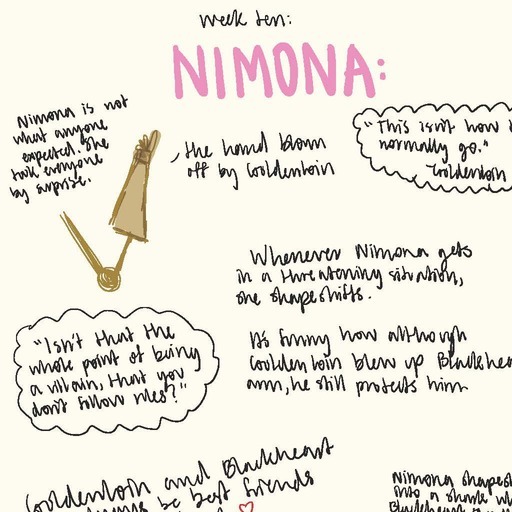 week ten:
NIMONA:
Nimona is not
what anyone
expected. She
took everyone
by surprise.
the hand blown
off by Goldenloin
"This isn't how
normally go."
-Goldenloin
Whenever Nimona gets
in a threatening situation,
she shapeshifts.
"Isn't that the
whole point of being
a villain, that you
don't follow rules?"
It's funny how although
Goldenloin blew up Blackhear
arm, he still protects him
Goldenloin and Blackheart
be best friends
Nimona shapes
into a shark
Blackheart